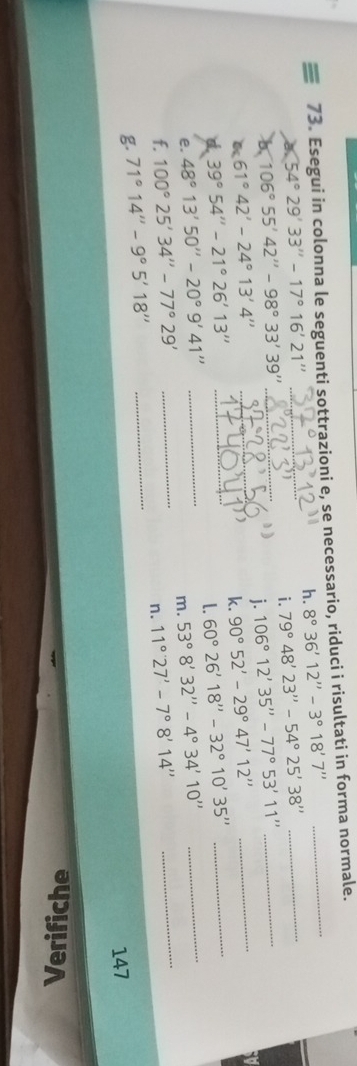 73. Esegui in colonna le seguenti sottrazioni e, se necessario, riduci i risultati in forma normale.
a. 54° 29' 33'' – 17° 16' 21'' 37° 13' 12''
b. 106° 55' 42'' – 98° 33' 39'' 8° 22' 3''
c. 61° 42' – 24° 13' 4'' 37° 28' 56''
d. 39° 54'' – 21° 26' 13'' 17° 40' 41''
e. 48° 13' 50'' – 20° 9' 41''
f. 100° 25' 34'' – 77° 29'
g. 71° 14'' – 9° 5' 18''
h. 8° 36' 12'' – 3° 18' 7''
i. 79° 48' 23'' – 54° 25' 38''
j. 106° 12' 35'' – 77° 53' 11''
k. 90° 52' – 29° 47' 12''
l. 60° 26' 18'' – 32° 10' 35''
m. 53° 8' 32'' – 4° 34' 10''
n. 11° 27' – 7° 8' 14''
147
Verifiche